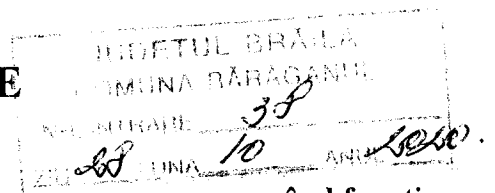 JUDEȚUL BRĂILA
E
COMUNA BĂRĂGANUL
NR. INTRARE 38
ZIUA 28 LUNA 10 ANUL 2020.